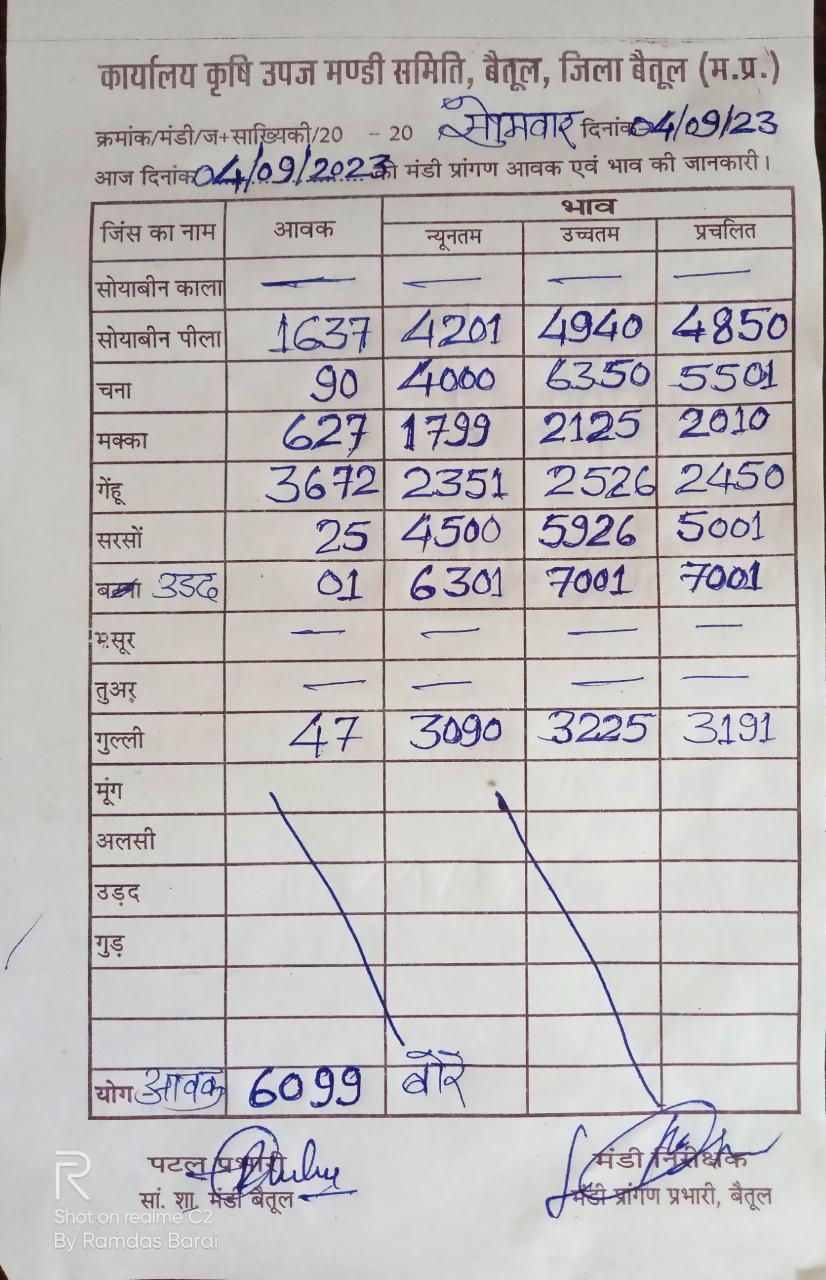 कार्यालय कृषि उपज मण्डी समिति, बैतूल, जिला बैतूल (म.प्र.)
क्रमांक/मंडी/ज+साख्यिकी/20 - 20 सोमवार दिनांक 04/09/23
आज दिनांक 04/09/2023 को मंडी प्रांगण आवक एवं भाव की जानकारी।
जिंस का नाम आवक भाव
न्यूनतम उच्चतम प्रचलित
सोयाबीन काला — — — —
सोयाबीन पीला 1637 4201 4940 4850
चना 90 4000 6350 5501
मक्का 627 1799 2125 2010
गेंहू 3672 2351 2526 2450
सरसों 25 4500 5926 5001
उडद 01 6301 7001 7001
मसूर — — — —
तुअर — — — —
गुल्ली 47 3090 3225 3191
मूंग
अलसी
उड़द
गुड़
योग आवक 6099 बोरे
पटल प्रभारी मंडी निरीक्षक
सां. शा. मंडी बैतूल मंडी प्रांगण प्रभारी, बैतूल
R
Shot on realme C2
By Ramdas Barai